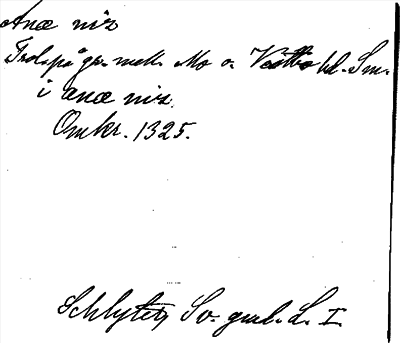 Anæ niz
Trol. på gr. mell. Mo o. Västbo hd. Sm.
i anæ niz.
Omkr. 1325.
Schlyter, Sv. gml. L. I